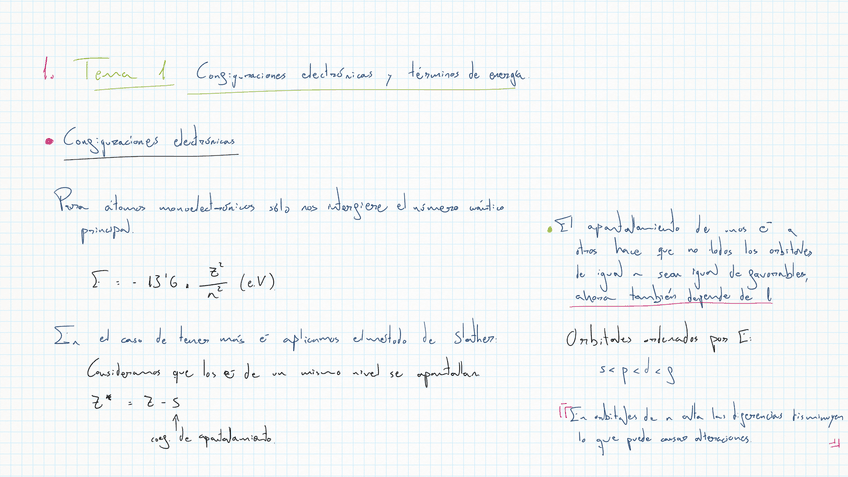 1. Tema 1 Configuraciones electrónicas y términos de energía
• Configuraciones electrónicas
Para átomos monoelectrónicos sólo nos interfiere el número cuántico
principal.
E = - 13'6 · z²/n² (eV)
En el caso de tener más e⁻ aplicamos el método de Slather:
Consideramos que los e⁻ de un mismo nivel se apantallan
z* = z - s
coef. de apantalamiento
• El apantallamiento de unos e⁻ a
otros hace que no todos los orbitales
de igual n sean igual de favorables,
ahora también depende de l
Orbitales ordenados por E:
s < p < d < f
En orbitales de n alta las diferencias disminuyen
lo que puede causar alteraciones.